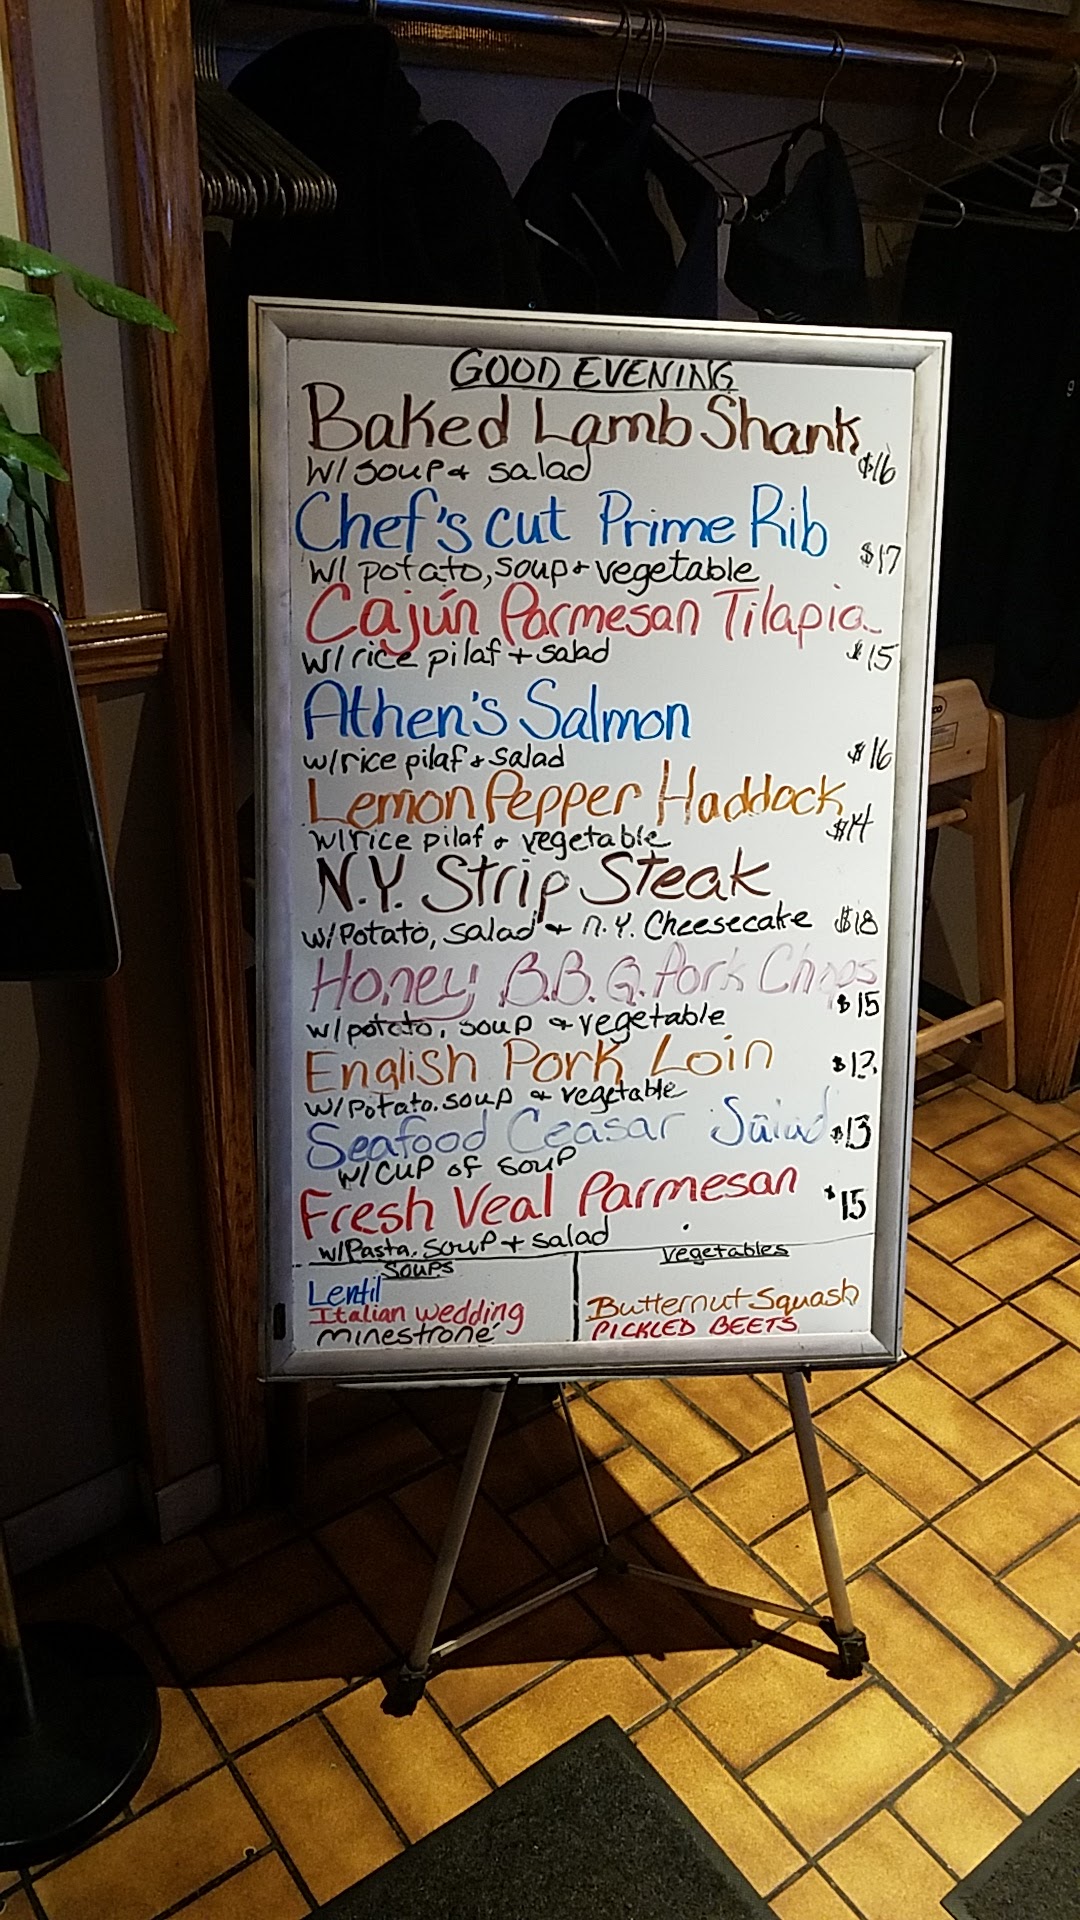 GOOD EVENING
Baked Lamb Shank
W/ soup & salad $16
Chef's cut Prime Rib
W/ potato, soup & vegetable $17
Cajún Parmesan Tilapia
w/ rice pilaf + salad $15
Athen's Salmon
w/rice pilaf & salad $16
Lemon Pepper Haddock
w/rice pilaf & vegetable $14
N.Y. Strip Steak
w/Potato, salad & N.Y. Cheesecake $18
Honey B.B.Q. Pork Chops
w/potato, soup & vegetable $15
English Pork Loin
w/Potato. soup & vegetable
Seafood Ceasar Salad $13
w/ CUP OF SOUP
Fresh Veal Parmesan $15
w/Pasta, soup + salad
Soups
Lentil
Italian wedding
minestrone
vegetables
Butternut Squash
PICKLED BEETS